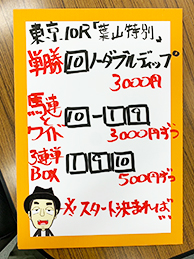 東京10R「葉山特別」
単勝 10 ノーダブルディップ
3000円
馬連と
ワイド 10-1 9
3000円ずつ
3連単
BOX 1 9 10
500円ずつ
※スタート決まれば…